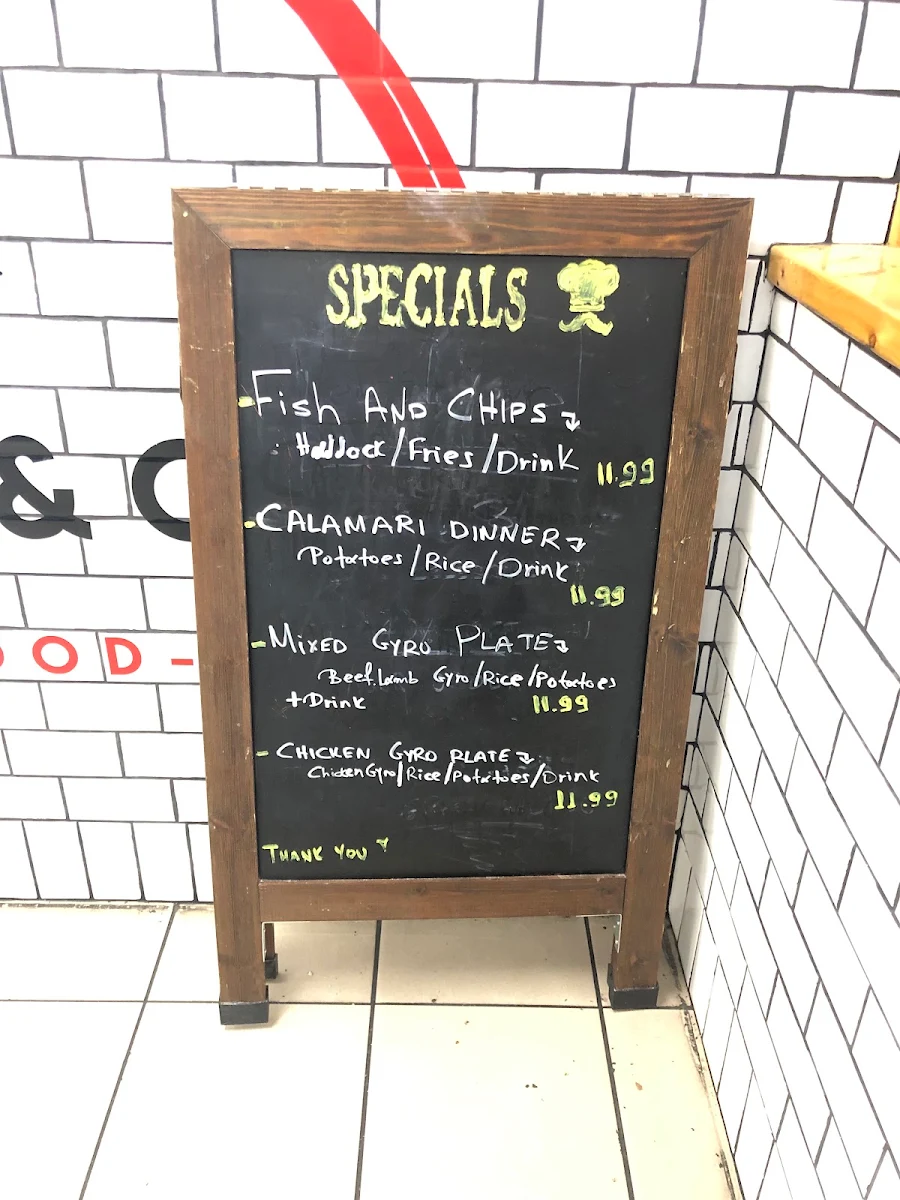 SPECIALS
Fish AND CHIPS
Haddock/Fries/Drink
11.99
CALAMARI DINNER
Potatoes/Rice/Drink
11.99
MIXED GYRO PLATE
Beef.Lamb Gyro/Rice/Potatoes
+Drink 11.99
CHICKEN GYRO PLATE
Chicken Gyro/Rice/Potatoes/Drink
11.99
THANK YOU
& C
OOD-